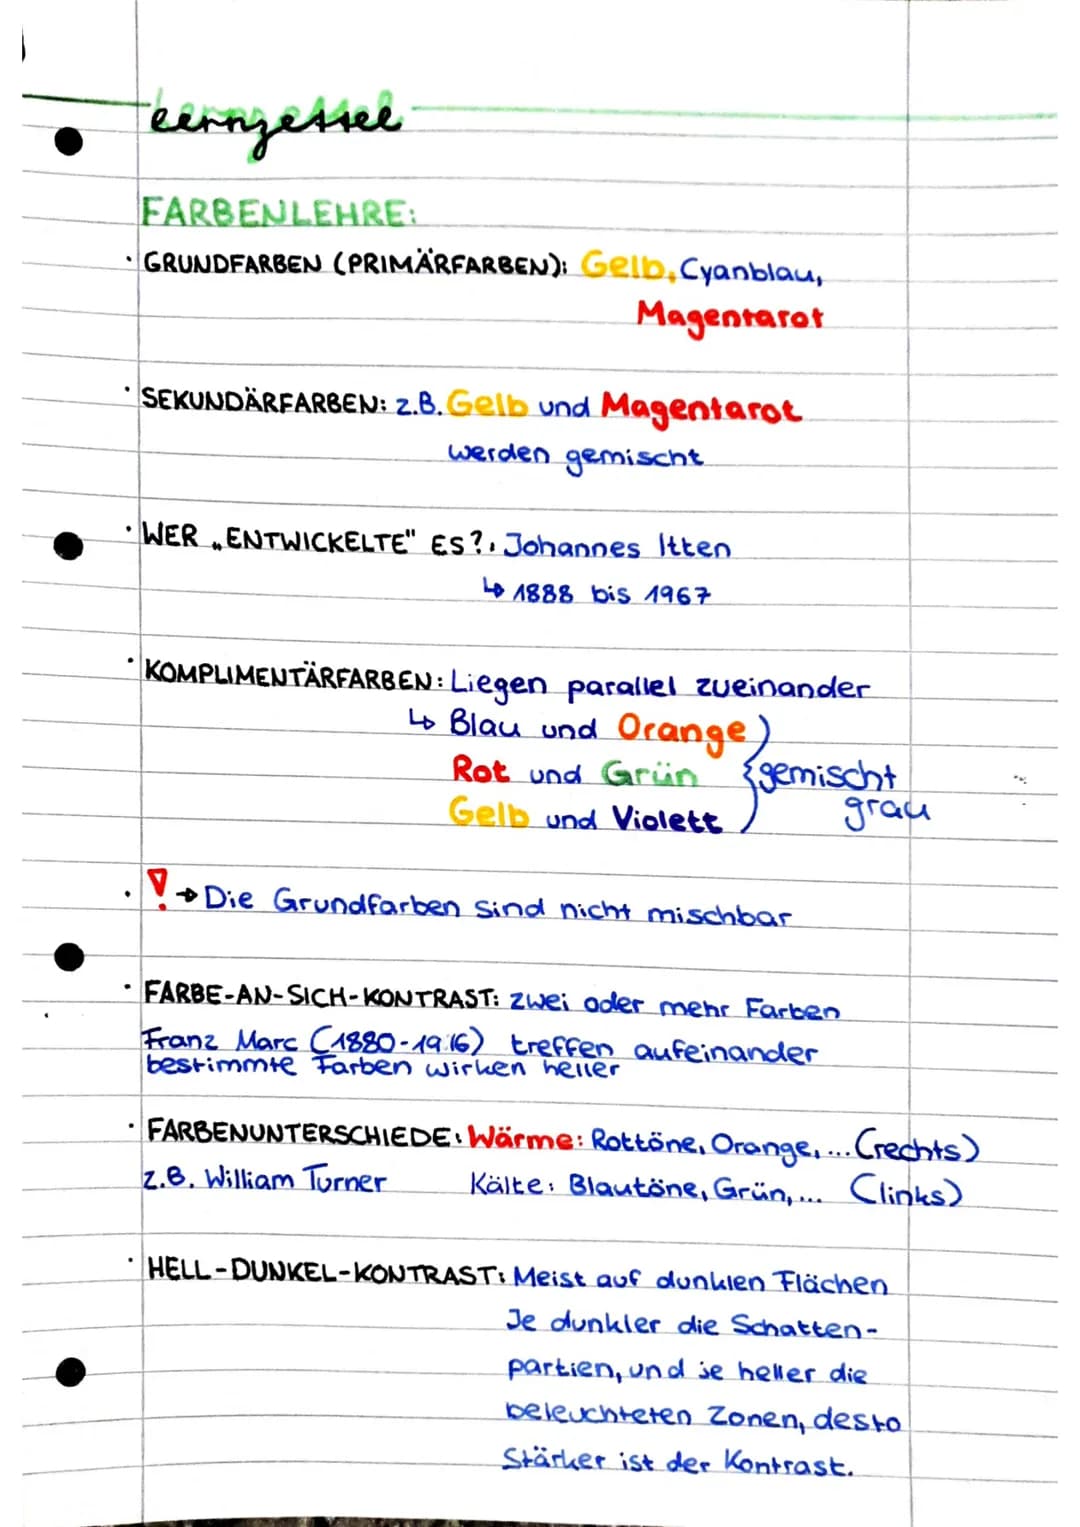 Lernzettel
FARBENLEHRE:
· GRUNDFARBEN (PRIMÄRFARBEN): Gelb, Cyanblau,
Magentarot
· SEKUNDÄRFARBEN: z.B. Gelb und Magentarot
werden gemischt
· WER „ENTWICKELTE" ES?: Johannes Itten
↳ 1888 bis 1967
· KOMPLIMENTÄRFARBEN: Liegen parallel zueinander
↳ Blau und Orange
Rot und Grün } gemischt
Gelb und Violett grau
· ! → Die Grundfarben sind nicht mischbar
· FARBE-AN-SICH-KONTRAST: zwei oder mehr Farben
Franz Marc (1880-1916) treffen aufeinander
bestimmte Farben wirken heller
· FARBENUNTERSCHIEDE: Wärme: Rottöne, Orange, ... (rechts)
z.B. William Turner Kälte: Blautöne, Grün, ... (links)
· HELL-DUNKEL-KONTRAST: Meist auf dunklen Flächen
Je dunkler die Schatten-
partien, und je heller die
beleuchteten Zonen, desto
Stärker ist der Kontrast.